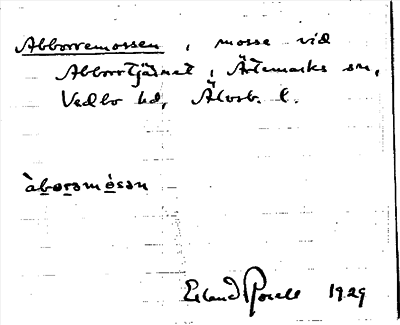 Abborremossen, mosse vid
Abborrtjärnet, Ärtemarks sn,
Vedbo hd, Älvsb. l.
àbørəmòsən
Erland Rosell 1929